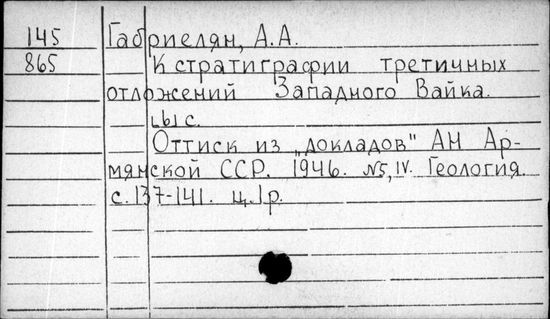 145 Габриелян, А.А.
865 К стратиграфии третичных
отложений Западного Вайка.
цыс.
Оттиск из „докладов" АН Ар-
мянской ССР. 1946. №5, IV. Геология.
с. 137-141. ц. 1р.